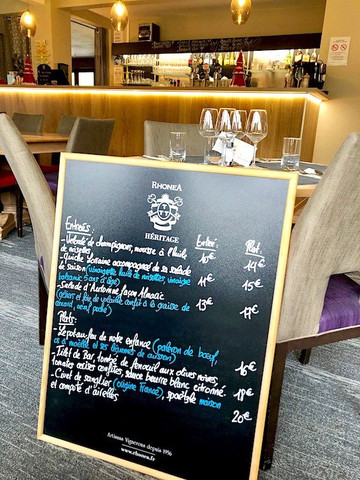 RHONEA
HÉRITAGE
Entrées: Entrée: Plat:
- Velouté de champignons, mousse à l'huile
de noisettes 10€ 14€
- Quiche Lorraine accompagnée de sa salade
de saison (vinaigrette huile de noisettes, vinaigre
balsamic 5 ans d'âge) 11€ 15€
- Salade d'Automne façon Almacie
(gésiers et foie de volaille confit à la graisse de
canard, oeuf poché) 13€ 17€
Plats:
- Le pot-au-feu de notre enfance (paleron de boeuf,
os à moëlle et ses légumes de cuisson) 16€
- Filet de Bar, fondue de fenouil aux olives noires,
tomates cerises confites, sauce beurre blanc citronné 18€
- Civet de sanglier (origine France), spaetzle maison
et compote d'airelles 20€
Artisans Vignerons depuis 1926
www.rhonea.fr